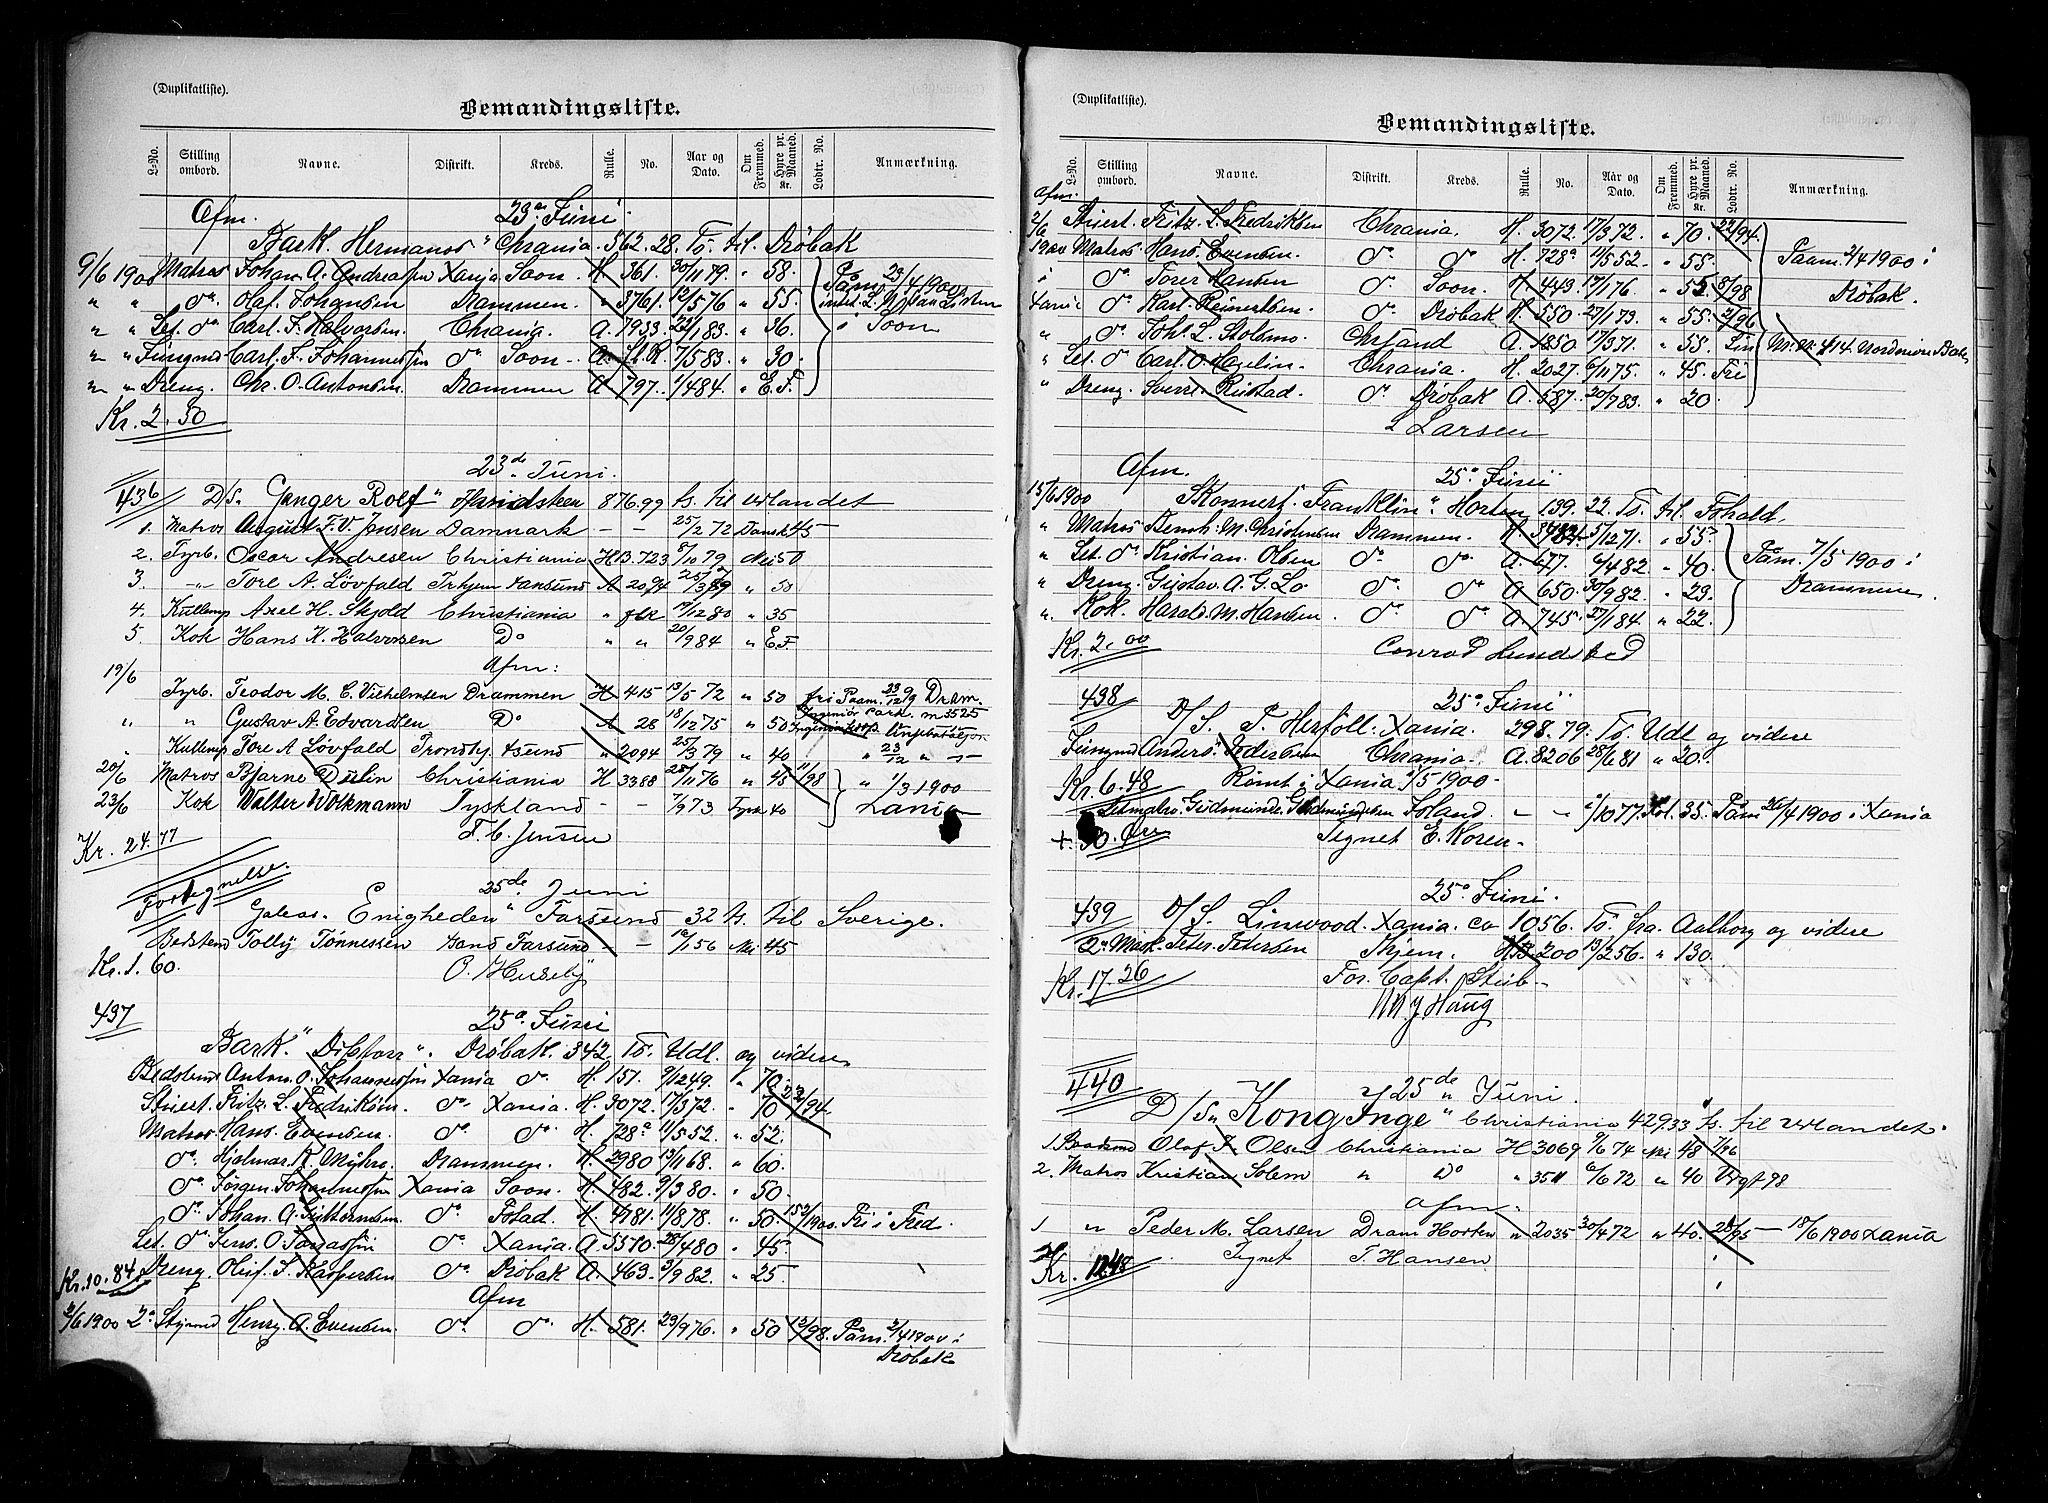 (Duplikatliste).
Bemandingsliste.
L-No. Stilling ombord. Navne. Distrikt. Kreds. Rulle. No. Aar og Dato. Om Fremmed. Hyre pr. Maaned. Kr. Lodtr. No. Anmærkning.
Afm. 23de Juni
Bark. Hermanos" Chrania. 562.28. To. til Drøbak
9/6 1900 Matros Johan A. Andreassen Xania Soon. H. 361. 30/11 79. " 58. Påm. 23/4 1900
" " do. Olaf Johansen Drammen. " 3761. 12/5 76 " 55.
" " Let. do. Carl. F. Halvorsen. Chrania. A. 7933. 22/1 83. " 36. i Soon
" " Jungmd Carl. F. Johannessen do. Soon A. fl.R. 7/5 83 " 30.
" " Dreng. Chr. O. Antonsen. Drammen A 797. 1/4 84. " E.F.
Kr. 2.50
23de Juni.
436 D/S. Ganger Rolf" 876.99 ts. til Udlandet
1. Matros August F.V. Jensen Danmark — — 25/2 72 Dansk 45
2. Fyrb. Oscar Andresen Christiania H B. 723 8/10 79 Nei 50
3. —"— Tore A. Løvfald Trhjem A 2094 25/3 79 " 50
4. Kullemp Axel H. Skjold Christiania " flR 14/12 80 " 35
5. Kok Hans K. Halvorsen Do " " 20/9 84 " E.F.
Afm:
19/6
Fyrb. Teodor M. C. Vilhelmsen Drammen H 415 13/5 72 " 50 fri Paam. 23/12 99 Dram.
" " Gustav A. Edvardsen Do A 28 18/12 75 " 50
" Kullemp Tore A Løvfald Trondhj. " 2094 25/3 79 " 40 " 23/12 " —"—
20/6 Matros Bjarne Dulin Christiania H 3388 25/11 76 " 45 11/98 " 1/3 1900
23/6 Kok Walter Wolkmann Tyskland — — 7/9 73 Tysk 40 Xania
F. C. Jensen
Kr. 24.77
Fortegnelse.
25de Juni
Galeas. Enigheden" Farsund 32 ts. til Sverige.
Bedstemd Tolly Tønnessen Farsund — — 12/1 56 Nei 45
Kr. 1.60. O. Huseby
437 25de Juni
Bark. " Diktator". Drøbak. 342 To. Udl. og videre
Bedstemd Anton. O. Johannessen Xania do. H. 157. 9/12 49. " 70.
Stuert. Fritz. L. Fredriksen. do. Xania. H. 3072. 17/3 72. " 70 22/94.
Matros Hans. Evensen. do. do. H. 728a 11/5 52. " 52.
do. Hjalmar. R. Myhro. Drammen. H. 2980 13/11 68. " 60.
do. Jørgen. Johannessen Xania Soon. H. 482. 9/3 80. " 50.
do. Johan. A. do. H. 4981 11/8 78. " 50. Fri i Fred.
Let. do. Jens. O. do. Xania. A. 5570. 28/4 80. " 45.
Dreng. Oluf. S. Kaspersen do. Drøbak A. 463. 3/9 82. " 25
Kr. 10.84.
Afm
2/6 1900 2n Styrmd Henry. A. Evensen. do. do. H. 581. 29/9 76. " 50 12/98. Påm. 2/4 1900 i
Drøbak
(Duplikatliste).
Bemandingsliste.
L-No. Stilling ombord. Navne. Distrikt. Kreds. Rulle. No. Aar og Dato. Om Fremmed. Hyre pr. Maaned. Kr. Lodtr. No. Anmærkning.
Afm.
2/6 Stuert. Fritz. L. Fredriksen Chrania. H. 3072. 17/3 72. " 70. 22/94.
1900 Matros Hans. Evensen. do. do. H. 728a 11/5 52. " 55. Paam. 2/4 1900 i
i do. Torer Hansen do. Soon. H. 443. 17/1 76. " 55. 8/98 Drøbak.
Xania do. Karl. Reinertsen. do. Drøbak H. 550. 27/1 73. " 55. 2/96
" do. Joh. L. Chrsand A. 1850 17/3 71. " 55.
" Let. do Carl. O. Hagelin. Chrania. H. 2027. 6/11 75. " 45. Fri
" Dreng. Sverre. Ruistad. do. Drøbak A. 587. 20/7 83. " 20.
L Larsen
Afm. 25de Juni
15/6 1900 Skonnert "Franklin". Horten 139.22. To. til
" Matros Bernh. M. Christensen Drammen. H. 5/12 71. " 55.
" Let. do. Kristian. Olsen do. do. A. 677. 6/4 82 " 40. Påm. 7/5 1900 i
" Dreng Gustav. A. G. Lo do. do. A 650. 30/9 82. " 23. Drammen.
" Kok. Harald. M. Hansen. do. do. A 745. 27/1 84. " 22.
Kr. 2.00 Conrad Lundsted
438 25de Juni
D/S. P. Herfoll. Xania. 298.79. To. Udl og videre
Jungmd Anders. Pedersen Chrania. A. 8206 28/6 81 " 20.
Kr. 6.48 Rømt i Xania 2/5 1900.
Letmatro. Gudmunde. — — 2/10 77. 35. Påm 26/4 1900 i Xania
+ 30. Øre Tegnet E. Koren.
25de Juni.
439 D/S. Linwood. Xania. ca 1056. To. fra. Aalborg og videre
2n Mask. Peter. Petersen Thjem. 200 13/2 56. " 130.
Kr. 17.26 For. Capt. Stub.
M J Haug
440 25de Juni.
D/S. "Kong Inge" Christiania 429.33 ts. til Udlandet.
1. Baadsmd Olaf A. Olsen Christiania H 3069 9/6 74 Nei 48 7/96
2. Matros Kristian Solem " Do " 3511 6/6 72 " 40 98
Afm:
1 " Peder M. Larsen Dram Horten " 2035 30/4 72 " 40. 28/95 — 18/6 1900 Xania
Kr. 12.48 Tegnet T. Hansen